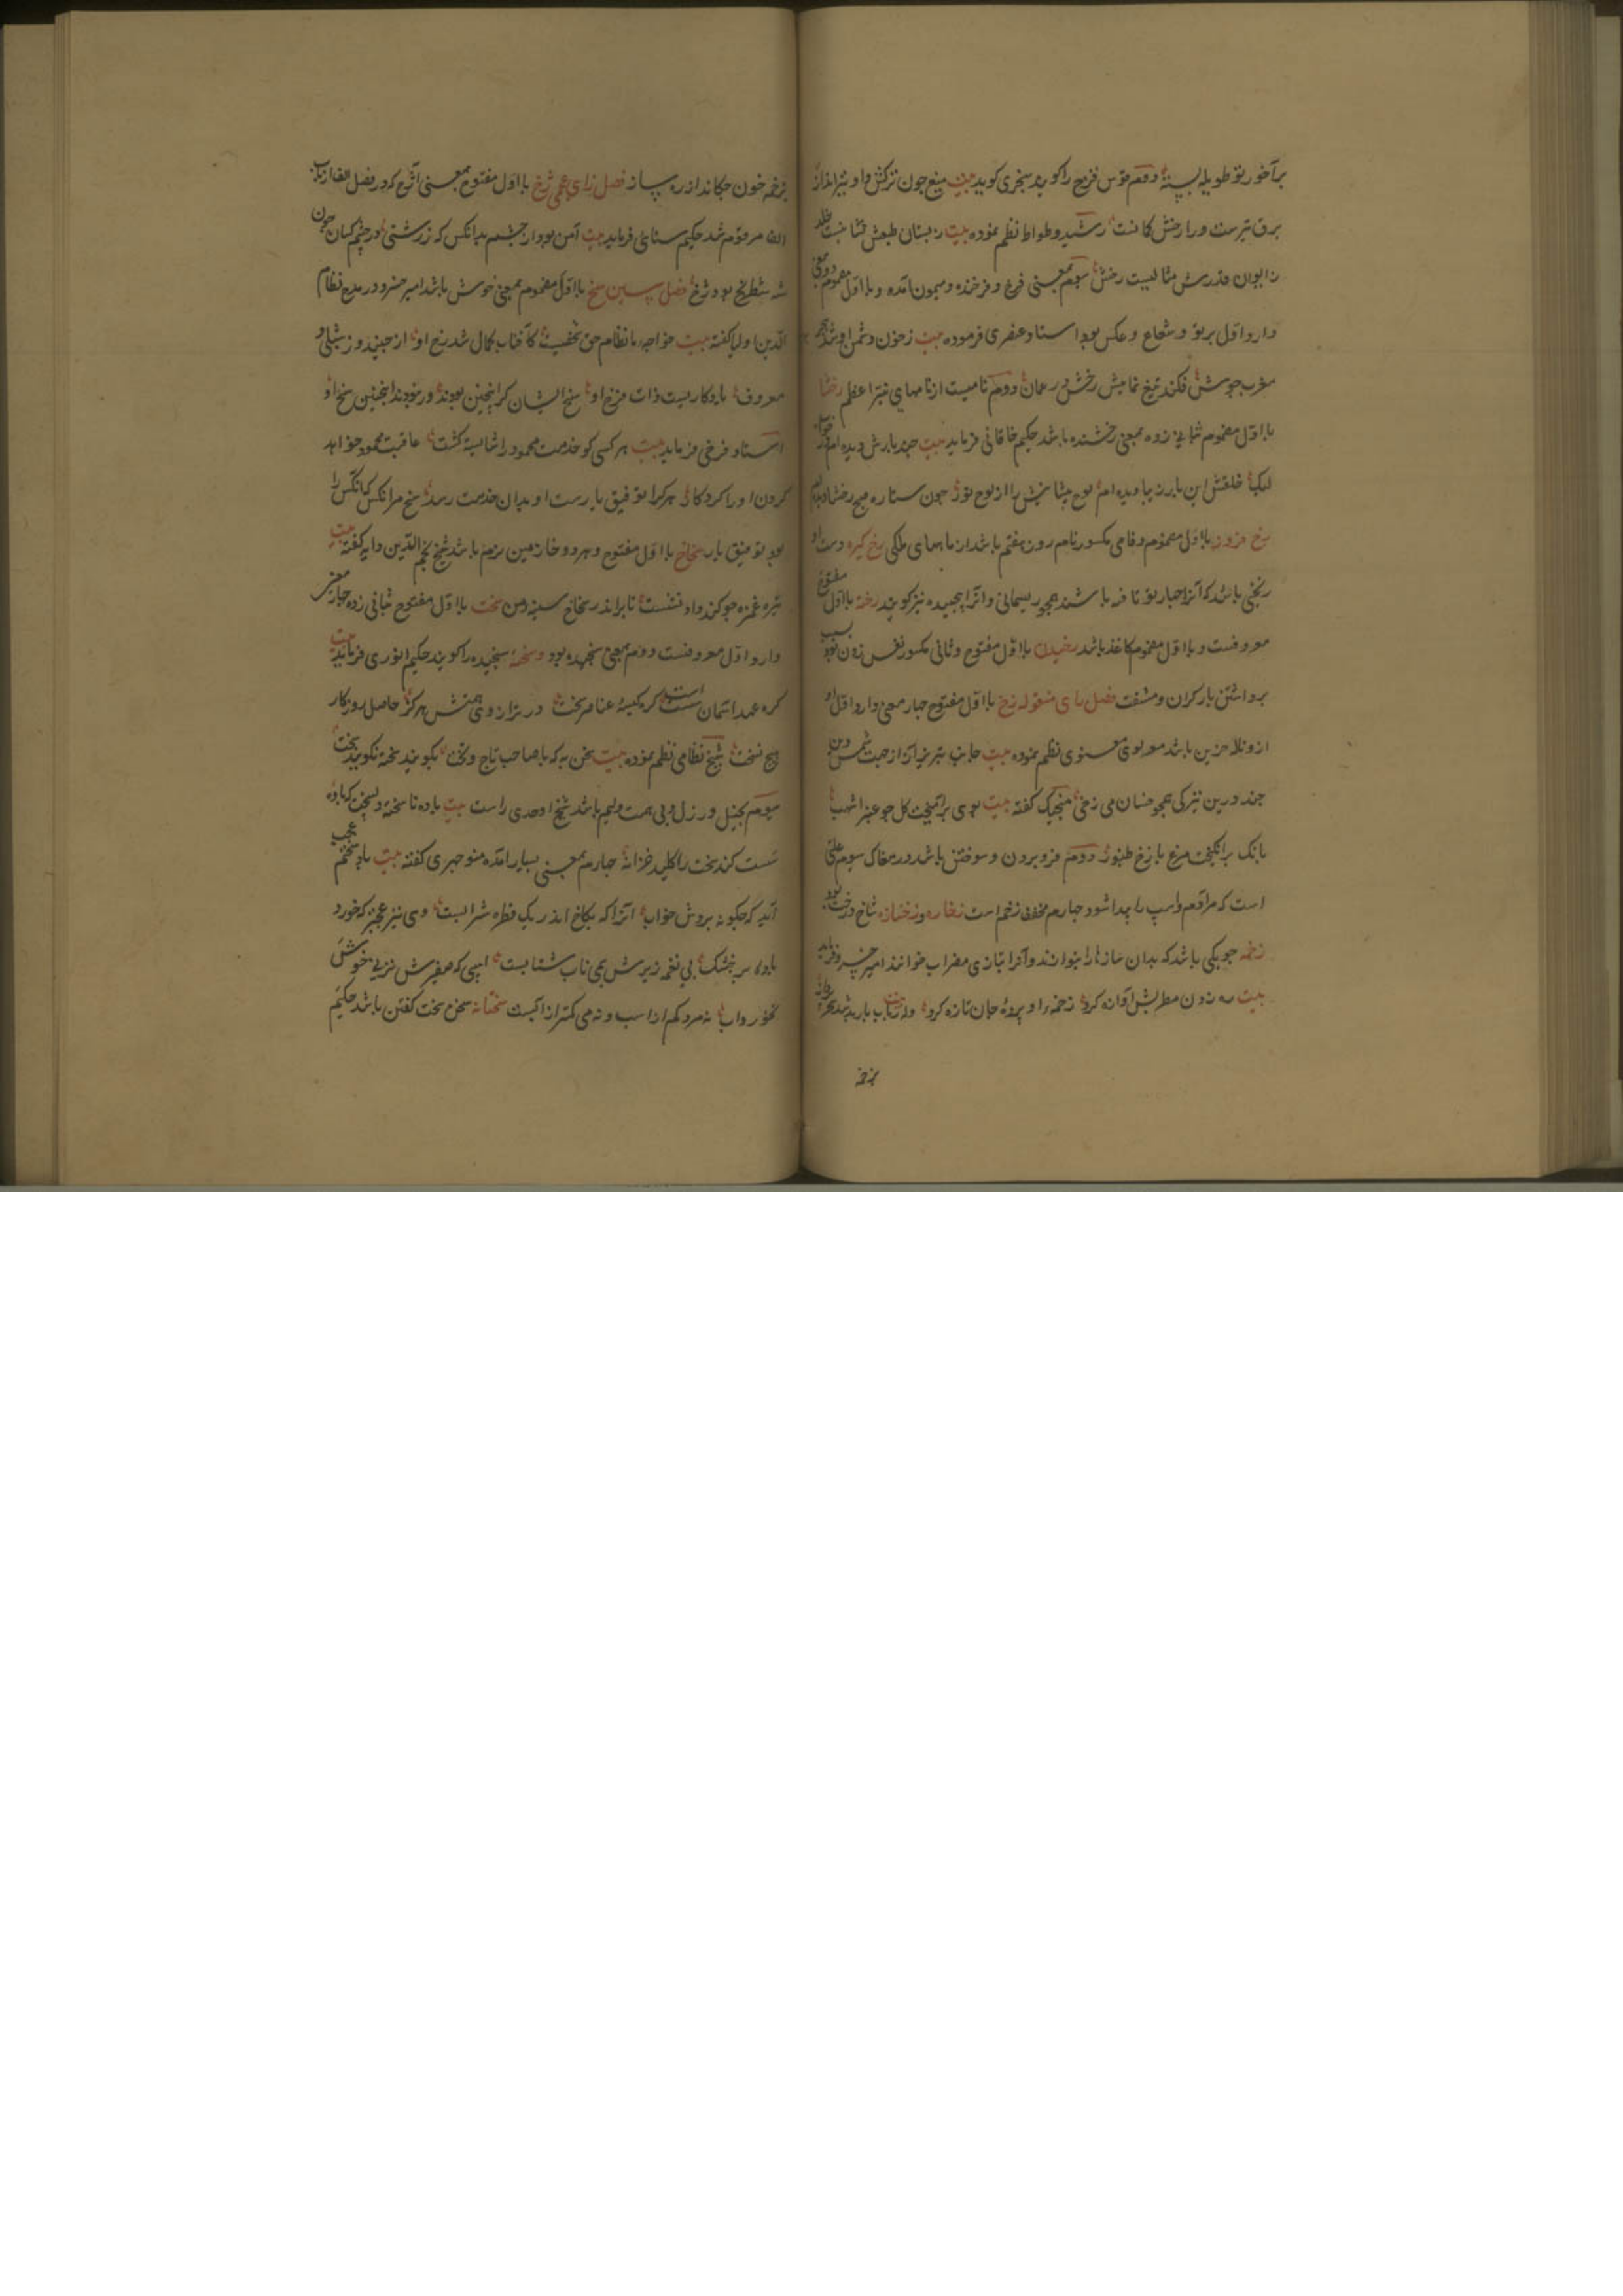 برآخور تو طویله بسته دوم قوس قزح را گویند سنجری گوید بیت میغ چون ترکش و او تیرانداز
برق تیرست ورا رخش کمانست رشید وطواط نظم نموده بیت ز بستان طبعش مثالیست خلد
ز ایوان قدرش مثالیست رخش سوم بمعنی فرخ و فرخنده و میمون آمده و با اول مضموم دو معنی
دارد اول پرتو و شعاع و عکس بود استاد عنصری فرموده بیت ز خون دشمن او شد ببحر
مغرب جوش فکند تیغ یمانیش رخش در عمان دوم نامیست از نامهای نیر اعظم رخشا
با اول مضموم بثانی زده بمعنی رخشنده باشد حکیم خاقانی فرماید بیت چند بارش دیده ام
لیک خلقش این بار زیبا دیده ام لوح پیشانیش را از نوح نور چون ستاره صبح رخشا دیده ام
رخ فروز با اول مضموم و فای مکسور نام روز هفتم باشد از ماههای ملکی رخ کیره
ریختی باشد که آنرا چهار تو تافته باشند همچو ریسمانی و آنرا پیچیده نیز گویند رخنه با اول مفتوح
معروفست و با اول مضموم کاغذ باشد رخیدن با اول مفتوح و ثانی مکسور نفس زدن بود بسبب
برداشتن بار گران و مشقت فصل زای منقوله زخ با اول مفتوح چهار معنی دارد اول
آواز و ناله حزین باشد مولوی معنوی نظم نموده بیت جانب تبریز آن از جهت شمس دین
چند درین تیرگی همچو خسان می زخی منجیک گفته بیت بوی برآمیخت گل چو عنبر اشهب
بانگ برانگیخت مرغ با زخ طنبور دوم فرو بردن و سوختن باشد در مغاک سوم علتی
است که مر آدم واسپ را پیدا شود چهارم مخفف زخم است زخاره و زختازه شاخ درخت بود
زخمه چوبکی باشد که بدان سازها را بنوازند و آنرا بتازی مضراب خوانند امیر خسرو فرماید
بیت ره زدن مطربش آوازه کرد زخمه او پرده جان تازه کرد
بزخمه
بزخمه خون چکاند از ره ساز فصل زای عجمی ژخ با اول مفتوح بمعنی آژخ که در فصل الف از باب
الف مرقوم شد حکیم سنائی فرماید بیت آمن بود از چشم بد آنکس که ز زشتی در چشم کسان چون
شه شطرنج بود ژخ فصل سین سخ با اول مضموم بمعنی خوش باشد امیر خسرو در مدح نظام
الدین اولیا گفته بیت خواجه ما نظام حق کآفتاب کمال شد رخ او از جنید و ز شبلی و
معروف یادگاریست ذات فرخ او سخ ایشان کز اینچنین بودند ور نبودند اینچنین سخ او
استاد فرخی فرماید بیت هر کسی کو خدمت محمود را شایسته گشت عاقبت محمود خواهد
کردن او را کردگار هر کرا توفیق یارست او بدان خدمت رسد سخ مر آنکس را کانکس را
بود توفیق یار سخاخ با اول مفتوح و هر دو خا زمین نرم باشد شیخ نجم الدین دایه گفته بیت
تیر غمزه چو کند داد نشست تا براند ر سخاخ سینه من سخت با اول مفتوح بثانی زده چهار معنی
دارد اول معروفست دوم بمعنی سنجیده بود و سخته سنجیده را گویند حکیم انوری فرماید بیت
گره عهد آسمان سست است گره کیسه عناصر سخت در ترازوی همتش هرگز حاصل روزگار
هیچ نسخت شیخ نظامی نظم نموده بیت سخن به که با صاحب تاج و تخت بگویند سخته نگویند سخت
سوم بخیل و رذل و بی همت و لئیم باشد شیخ اوحدی راست بیت باده تا سخته
سست کند سخت را کلید خزانه چهارم بمعنی بسیار آمده منوچهری گفته بیت باده سختم عجب
آید که چگونه بردش خواب آنرا که بکاخ اندر یک قطره شرابست وی نیز عجبتر که خورد
باده بر خشک بی نغمه زیرش بمی ناب شتابست اسپی که صفیرش نزنی خوش
نخورد آب نه مرد کم از اسب و نه می کمتر از آبست سختانه سخن سخت گفتن باشد حکیم